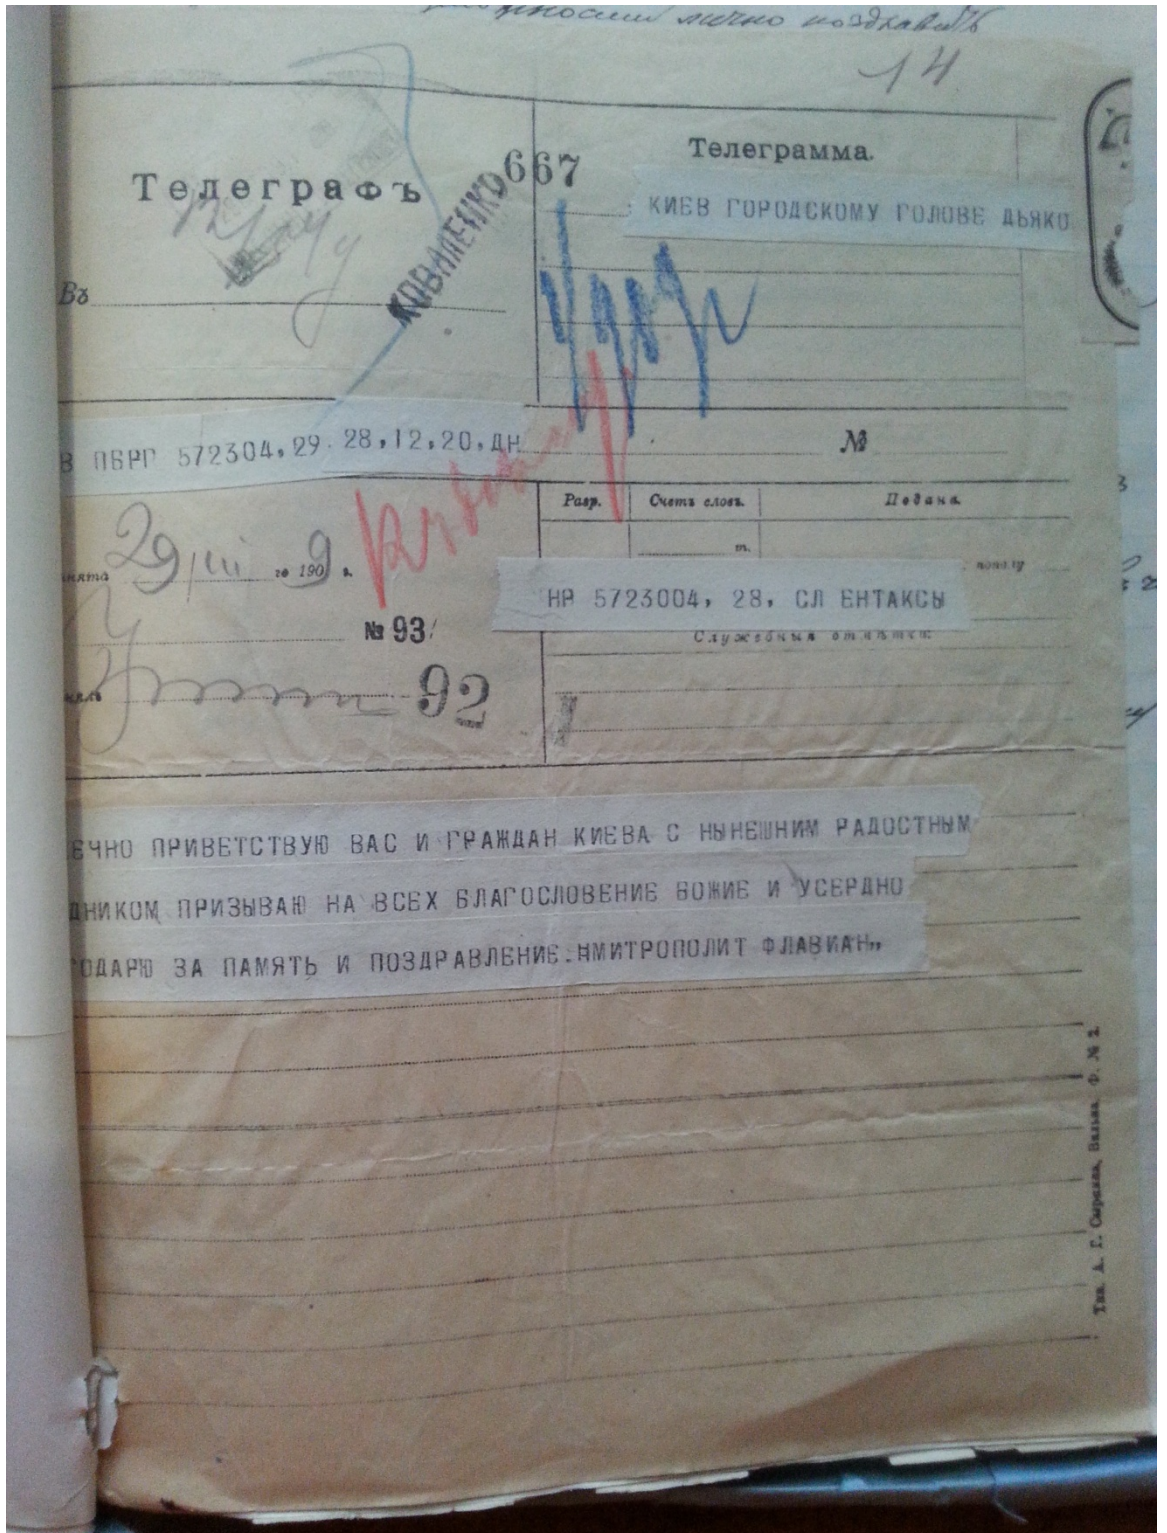 лично поздравить
14
Телеграфъ
667
Телеграмма.
КИЕВ ГОРОДСКОМУ ГОЛОВЕ ДЬЯКО
КОВАЛЕНКО
Въ
В ПБРГ 572304,29. 28,12,20,ДН
№
Разр.
Счетъ словъ.
Подана.
т.
пополу
29/III го 1909 г.
НР 5723004, 28, СЛ ЕНТАКСЫ
№ 93/
Служебныя отмѣтки:
92
ЕЧНО ПРИВЕТСТВУЮ ВАС И ГРАЖДАН КИЕВА С НЫНЕШНИМ РАДОСТНЫМ
ДНИКОМ ПРИЗЫВАЮ НА ВСЕХ БЛАГОСЛОВЕНИЕ БОЖИЕ И УСЕРДНО
ГОДАРЮ ЗА ПАМЯТЬ И ПОЗДРАВЛЕНИЕ.НМИТРОПОЛИТ ФЛАВИАН„
Тип. А. Г. Сыркина, Вильна. Ф. № 2.